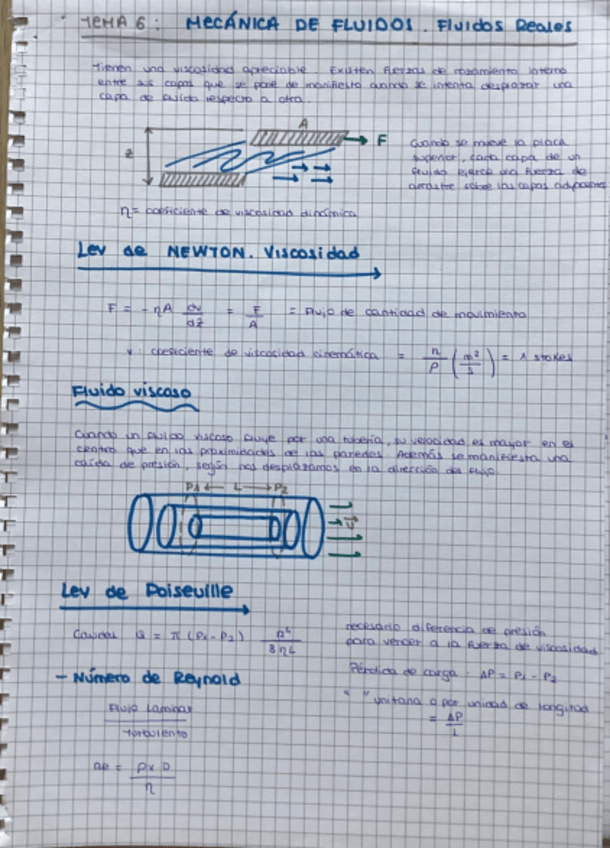 TEMA 6: MECÁNICA DE FLUIDOS. Fluidos Reales
Tienen una viscosidad apreciable. Existen fuerzas de rozamiento interno
entre sus capas que se pone de manifiesto cuando se intenta desplazar una
capa de fluido respecto a otra.
A
F
z
Cuando se mueve la placa
superior, cada capa de un
fluido ejerce una fuerza de
arrastre sobre las capas adyacentes
η = coeficiente de viscosidad dinámica
Ley de NEWTON. Viscosidad
F = - ηA dv/dz = F/A = Flujo de cantidad de movimiento
ν: coeficiente de viscosidad cinemática = η/ρ (m²/s) = 1 stokes
Fluido viscoso
Cuando un fluido viscoso fluye por una tubería, su velocidad es mayor en el
centro que en las proximidades de las paredes. Además se manifiesta una
caída de presión, según nos desplazamos en la dirección del flujo.
P1 ← L → P2
v
Ley de Poiseuille
Caudal Q = π (P1 - P2) R⁴/8ηL
necesario diferencia de presión
para vencer a la fuerza de viscosidad
Pérdida de carga = ΔP = P1 - P2
" " unitaria o por unidad de longitud
= ΔP/L
- Número de Reynold
Flujo Laminar
Turbulento
Re = ρv D/η